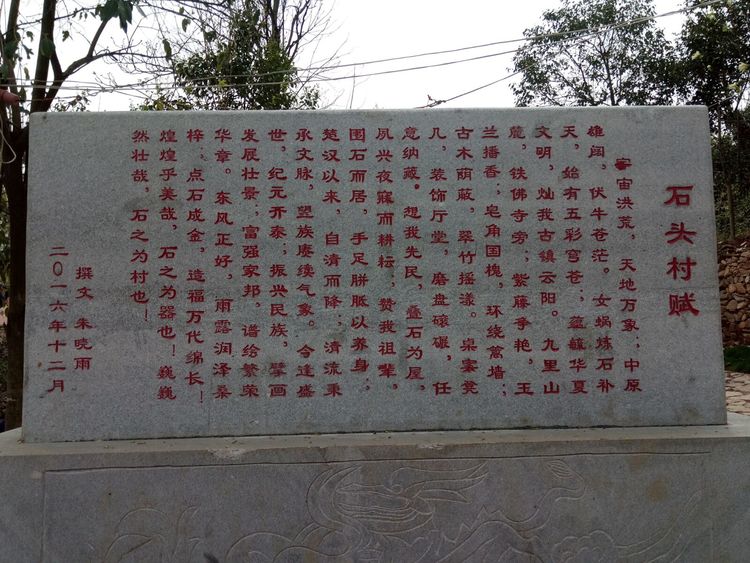 石头村赋
宇宙洪荒，天地万象；中原
雄阔，伏牛苍茫。女娲炼石补
天，始有五彩穹苍；蕴蘊华夏
文明，灿我古镇云阳。九里山
麓，铁佛寺旁；紫藤争艳，玉
兰播香；皂角国槐，环绕篱墙；
古木荫蔽，翠竹摇漾。桌案凳
几，装饰厅堂，磨盘碾石，任
意纳藏。想我先民，叠石为屋，
夙兴夜寐而耕耘，赞我祖辈，
围石而居，手足胼胝以养身；
楚汉以来，自清而降，清流秉
承文脉，望族赓续气象。今逢盛
世，纪元开泰；振兴民族，擘画
发展壮景，富强家邦，谱绘繁荣
华章。东风正好，雨露润泽桑
梓；点石成金，造福万代绵长！
煌煌乎美哉，石之为器也！巍巍
然壮哉，石之为村也！
撰文 朱晓雨
二〇一六年十二月